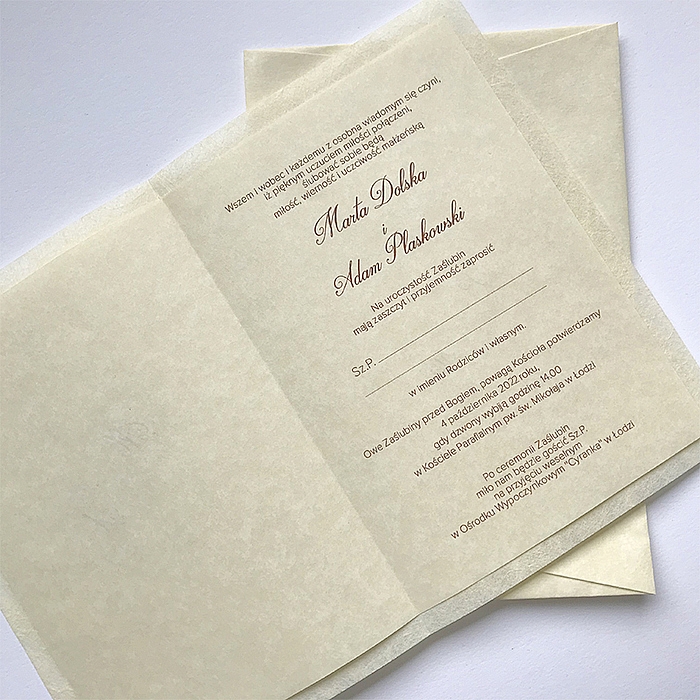 Wszem i wobec i każdemu z osobna wiadomym się czyni,
iż pięknym uczuciem miłości połączeni,
ślubować sobie będą
miłość, wierność i uczciwość małżeńską
Marta Dolska
i
Adam Plaskowski
Na uroczystość Zaślubin
mają zaszczyt i przyjemność zaprosić
Sz.P.
w imieniu Rodziców i własnym.
Owe Zaślubiny przed Bogiem, powagą Kościoła potwierdzamy
4 października 2022 roku,
gdy dzwony wybiją godzinę 14.00
w Kościele Parafialnym pw. św. Mikołaja w Łodzi
Po ceremonii Zaślubin
miło nam będzie gościć Sz.P.
na przyjęciu weselnym
w Ośrodku Wypoczynkowym "Cyranka" w Łodzi